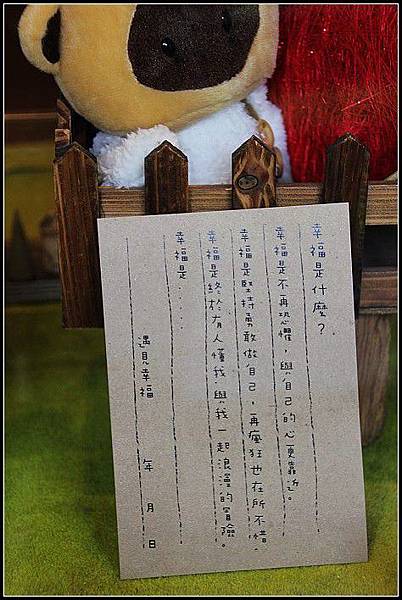 幸福是什麼?
幸福是不再恐懼，與自己的心更靠近。
幸福是堅持勇敢做自己，再瘋狂也在所不惜。
幸福是終於有人懂我，與我一起浪漫的冒險。
幸福是......
遇見幸福　　年　月　日